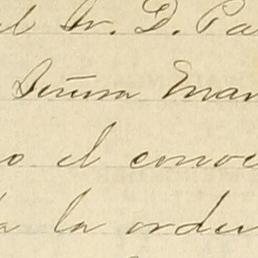 el Sr. D. Pa
Señora Mar
o el conve
a la orden